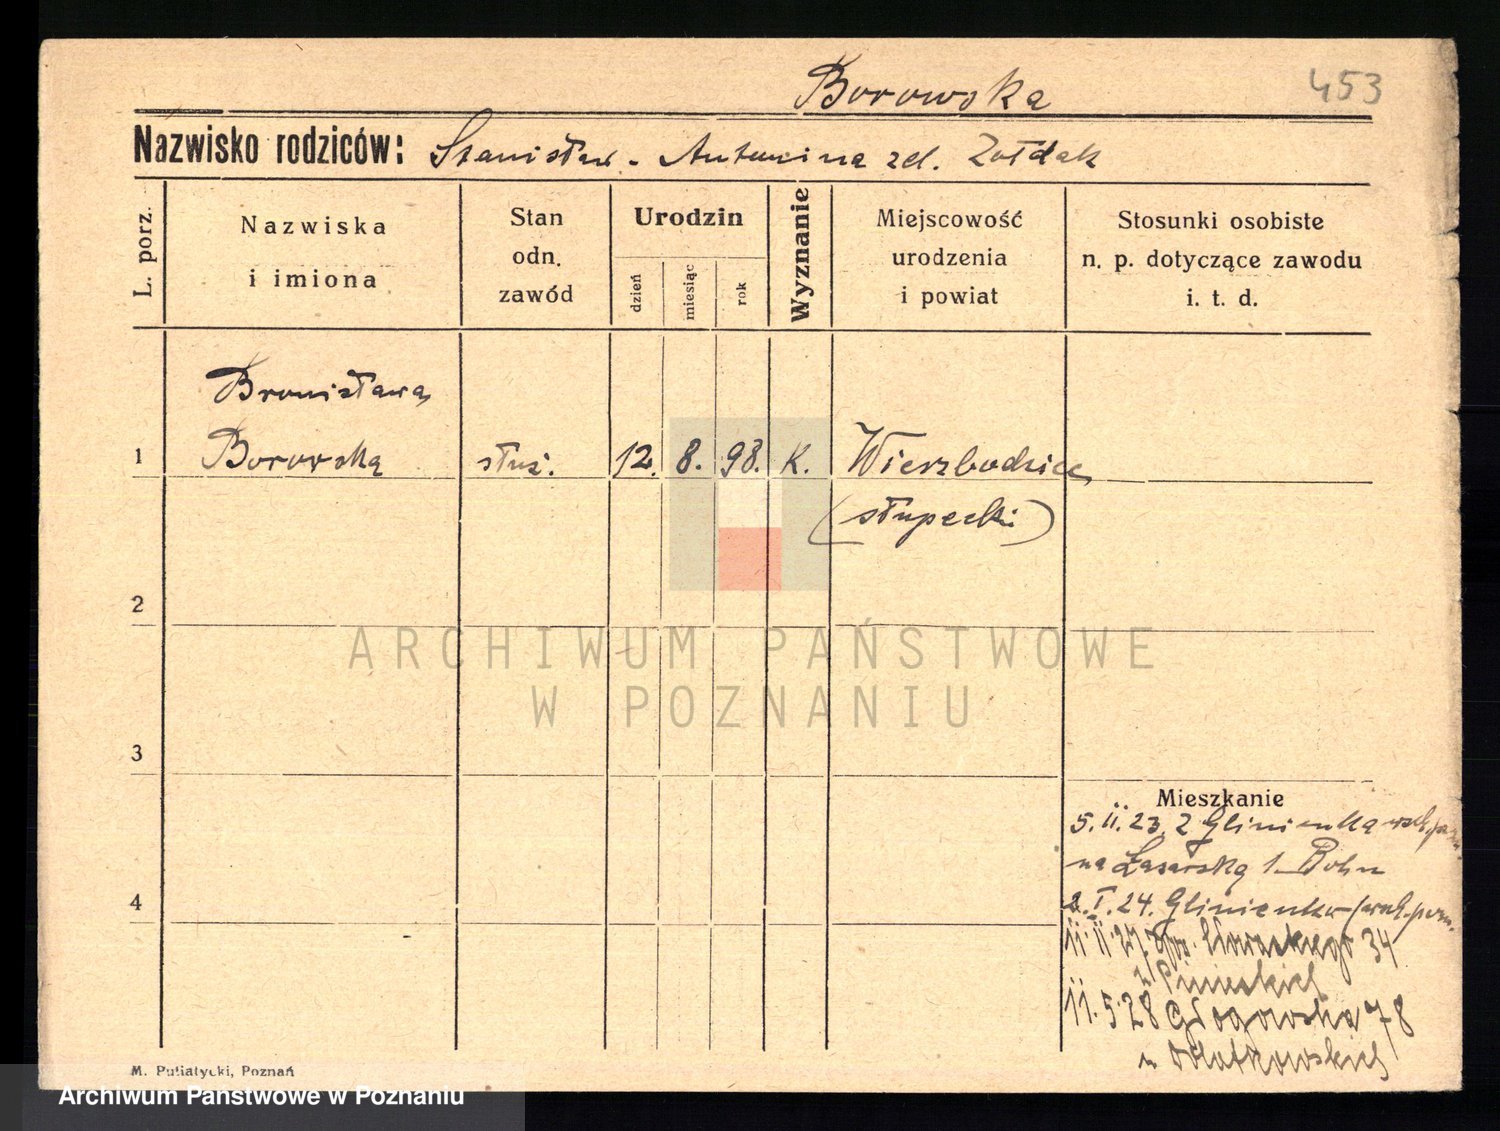 Borowska
453
Nazwisko rodziców: Stanisław - Antonina zd. Żołdak
L. porz.
Nazwiska
i imiona
Stan
odn.
zawód
Urodzin
dzień
miesiąc
rok
Wyznanie
Miejscowość
urodzenia
i powiat
Stosunki osobiste
n. p. dotyczące zawodu
i. t. d.
Bronisława
1 Borowska służ. 12. 8. 98. K. Wierzbocice
(słupecki)
2
3
4
Mieszkanie
5.11.23. z Glinienka
na Łazarską 1 Bohn
2.I.24. Glinienko
11.11.27. 34
11.5.28 Głogowska 78
M. Putiatycki, Poznań
ARCHIWUM PAŃSTWOWE
W POZNANIU
Archiwum Państwowe w Poznaniu